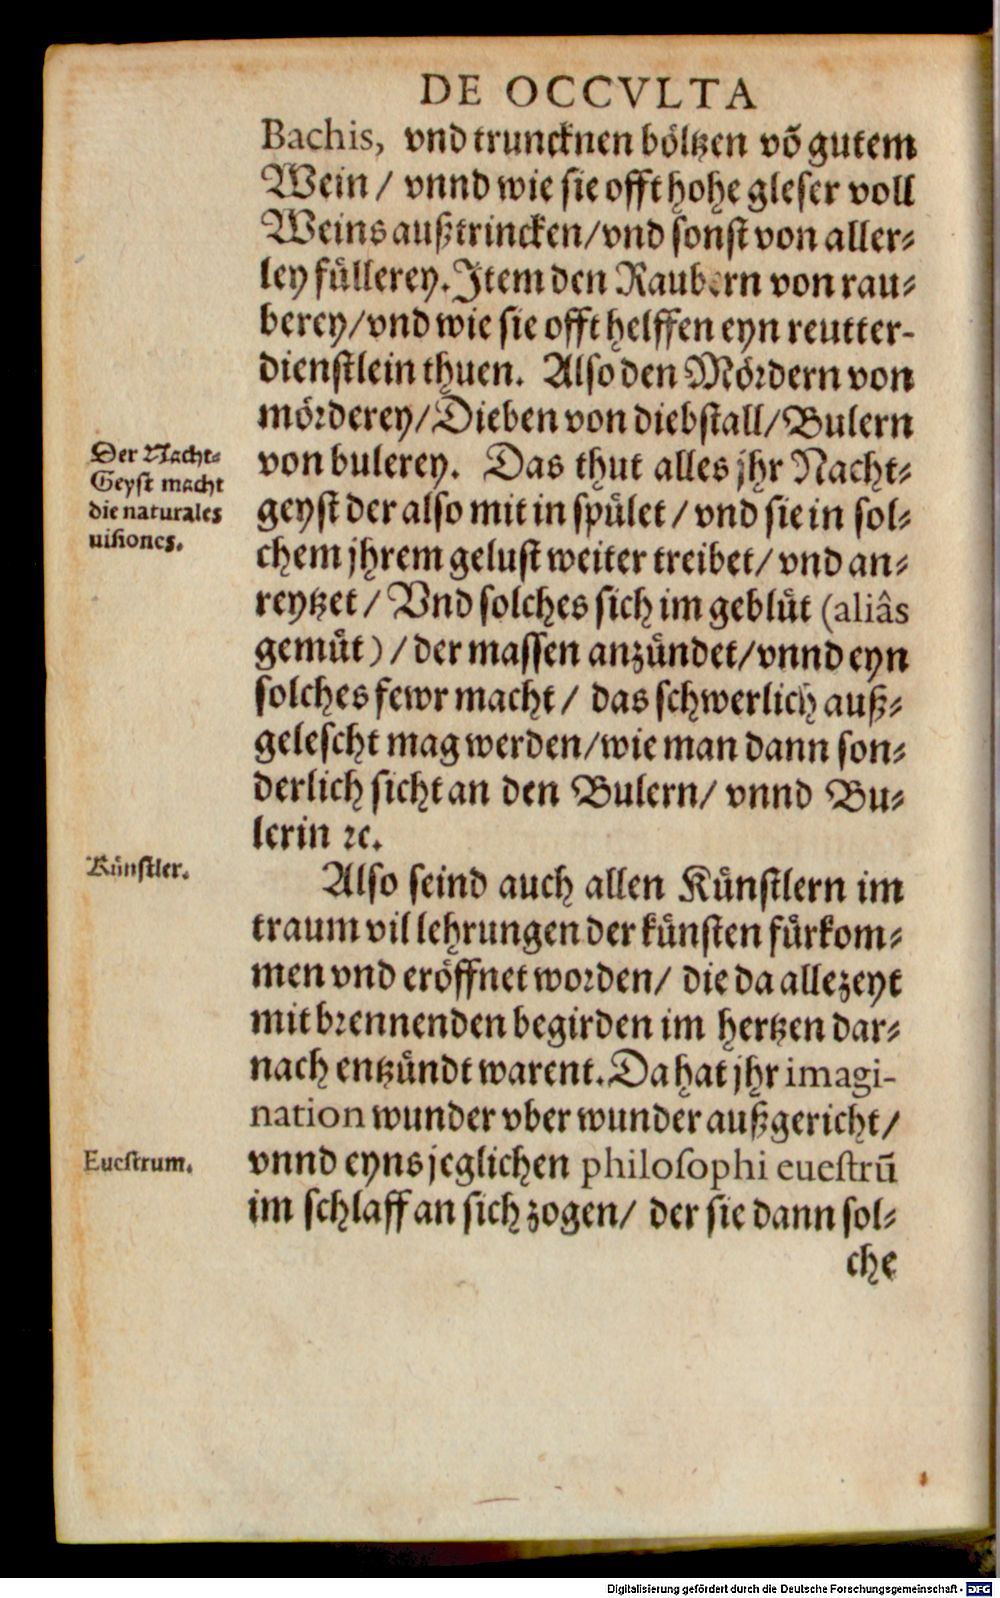 DE OCCVLTA
Bachis, vnd truncknen böltzen võ gutem
Wein / vnnd wie sie offt hohe gleser voll
Weins außtrincken/vnd sonst von aller⸗
ley füllerey. Item den Raubern von rau⸗
berey/vnd wie sie offt helffen eyn reutter-
dienstlein thuen. Also den Mördern von
mörderey/Dieben von diebstall/Bulern
von bulerey. Das thut alles jhr Nacht⸗
geyst der also mit in spület / vnd sie in sol⸗
chem jhrem gelust weiter treibet/ vnd an⸗
reytzet / Vnd solches sich im geblüt (aliâs
gemüt) / der massen anzündet/vnnd eyn
solches fewr macht / das schwerlich auß⸗
gelescht mag werden/wie man dann son⸗
derlich sicht an den Bulern/ vnnd Bu⸗
lerin ꝛc.
Also seind auch allen Künstlern im
traum vil lehrungen der künsten fürkom⸗
men vnd eröffnet worden/ die da allezeyt
mit brennenden begirden im hertzen dar⸗
nach entzündt warent. Da hat jhr imagi-
nation wunder vber wunder außgericht/
vnnd eyns jeglichen philosophi euestrũ
im schlaff an sich zogen/ der sie dann sol⸗
che
Der Nacht⸗
Geyst macht
die naturales
uisiones.
Künstler.
Euestrum.
Digitalisierung gefördert durch die Deutsche Forschungsgemeinschaft - DFG